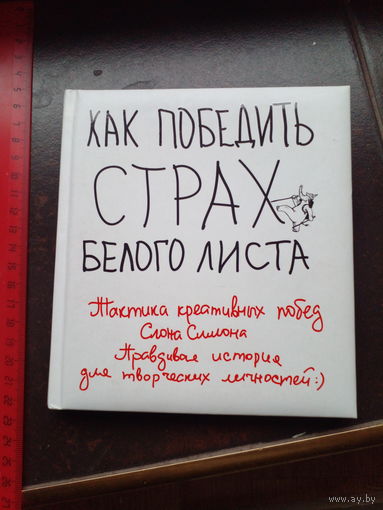 КАК ПОБЕДИТЬ
СТРАХ
БЕЛОГО ЛИСТА
Тактика креативных побед
Слона Симона
Правдивая история
для творческих личностей:)
www.ay.by